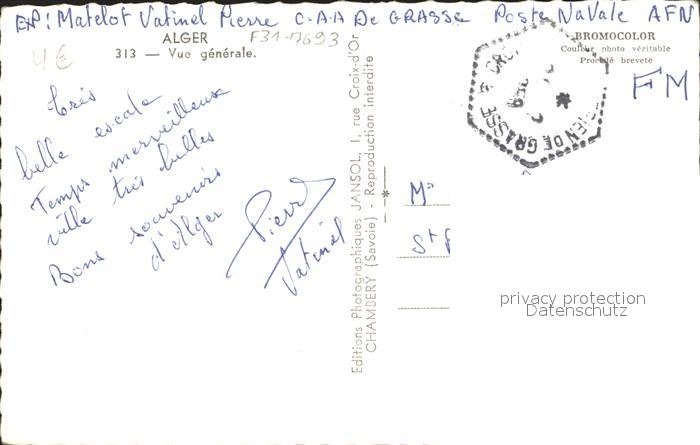 EXP: Matelot Vatinel Pierre C.A.A De GRASSE Poste NaVale AFN
ALGER
313 — Vue générale.
F31-17693
4€
BROMOCOLOR
Couleur photo véritable
Procédé breveté
FM
très
belle escale
Temps merveilleux
ville très belles
Bons souvenirs
d'Alger
Pierre
Vatinel
Editions Photographiques JANSOL, 1, rue Croix-d'Or
CHAMBERY (Savoie) - Reproduction interdite
DE GRASSE
Mr
St
privacy protection
Datenschutz